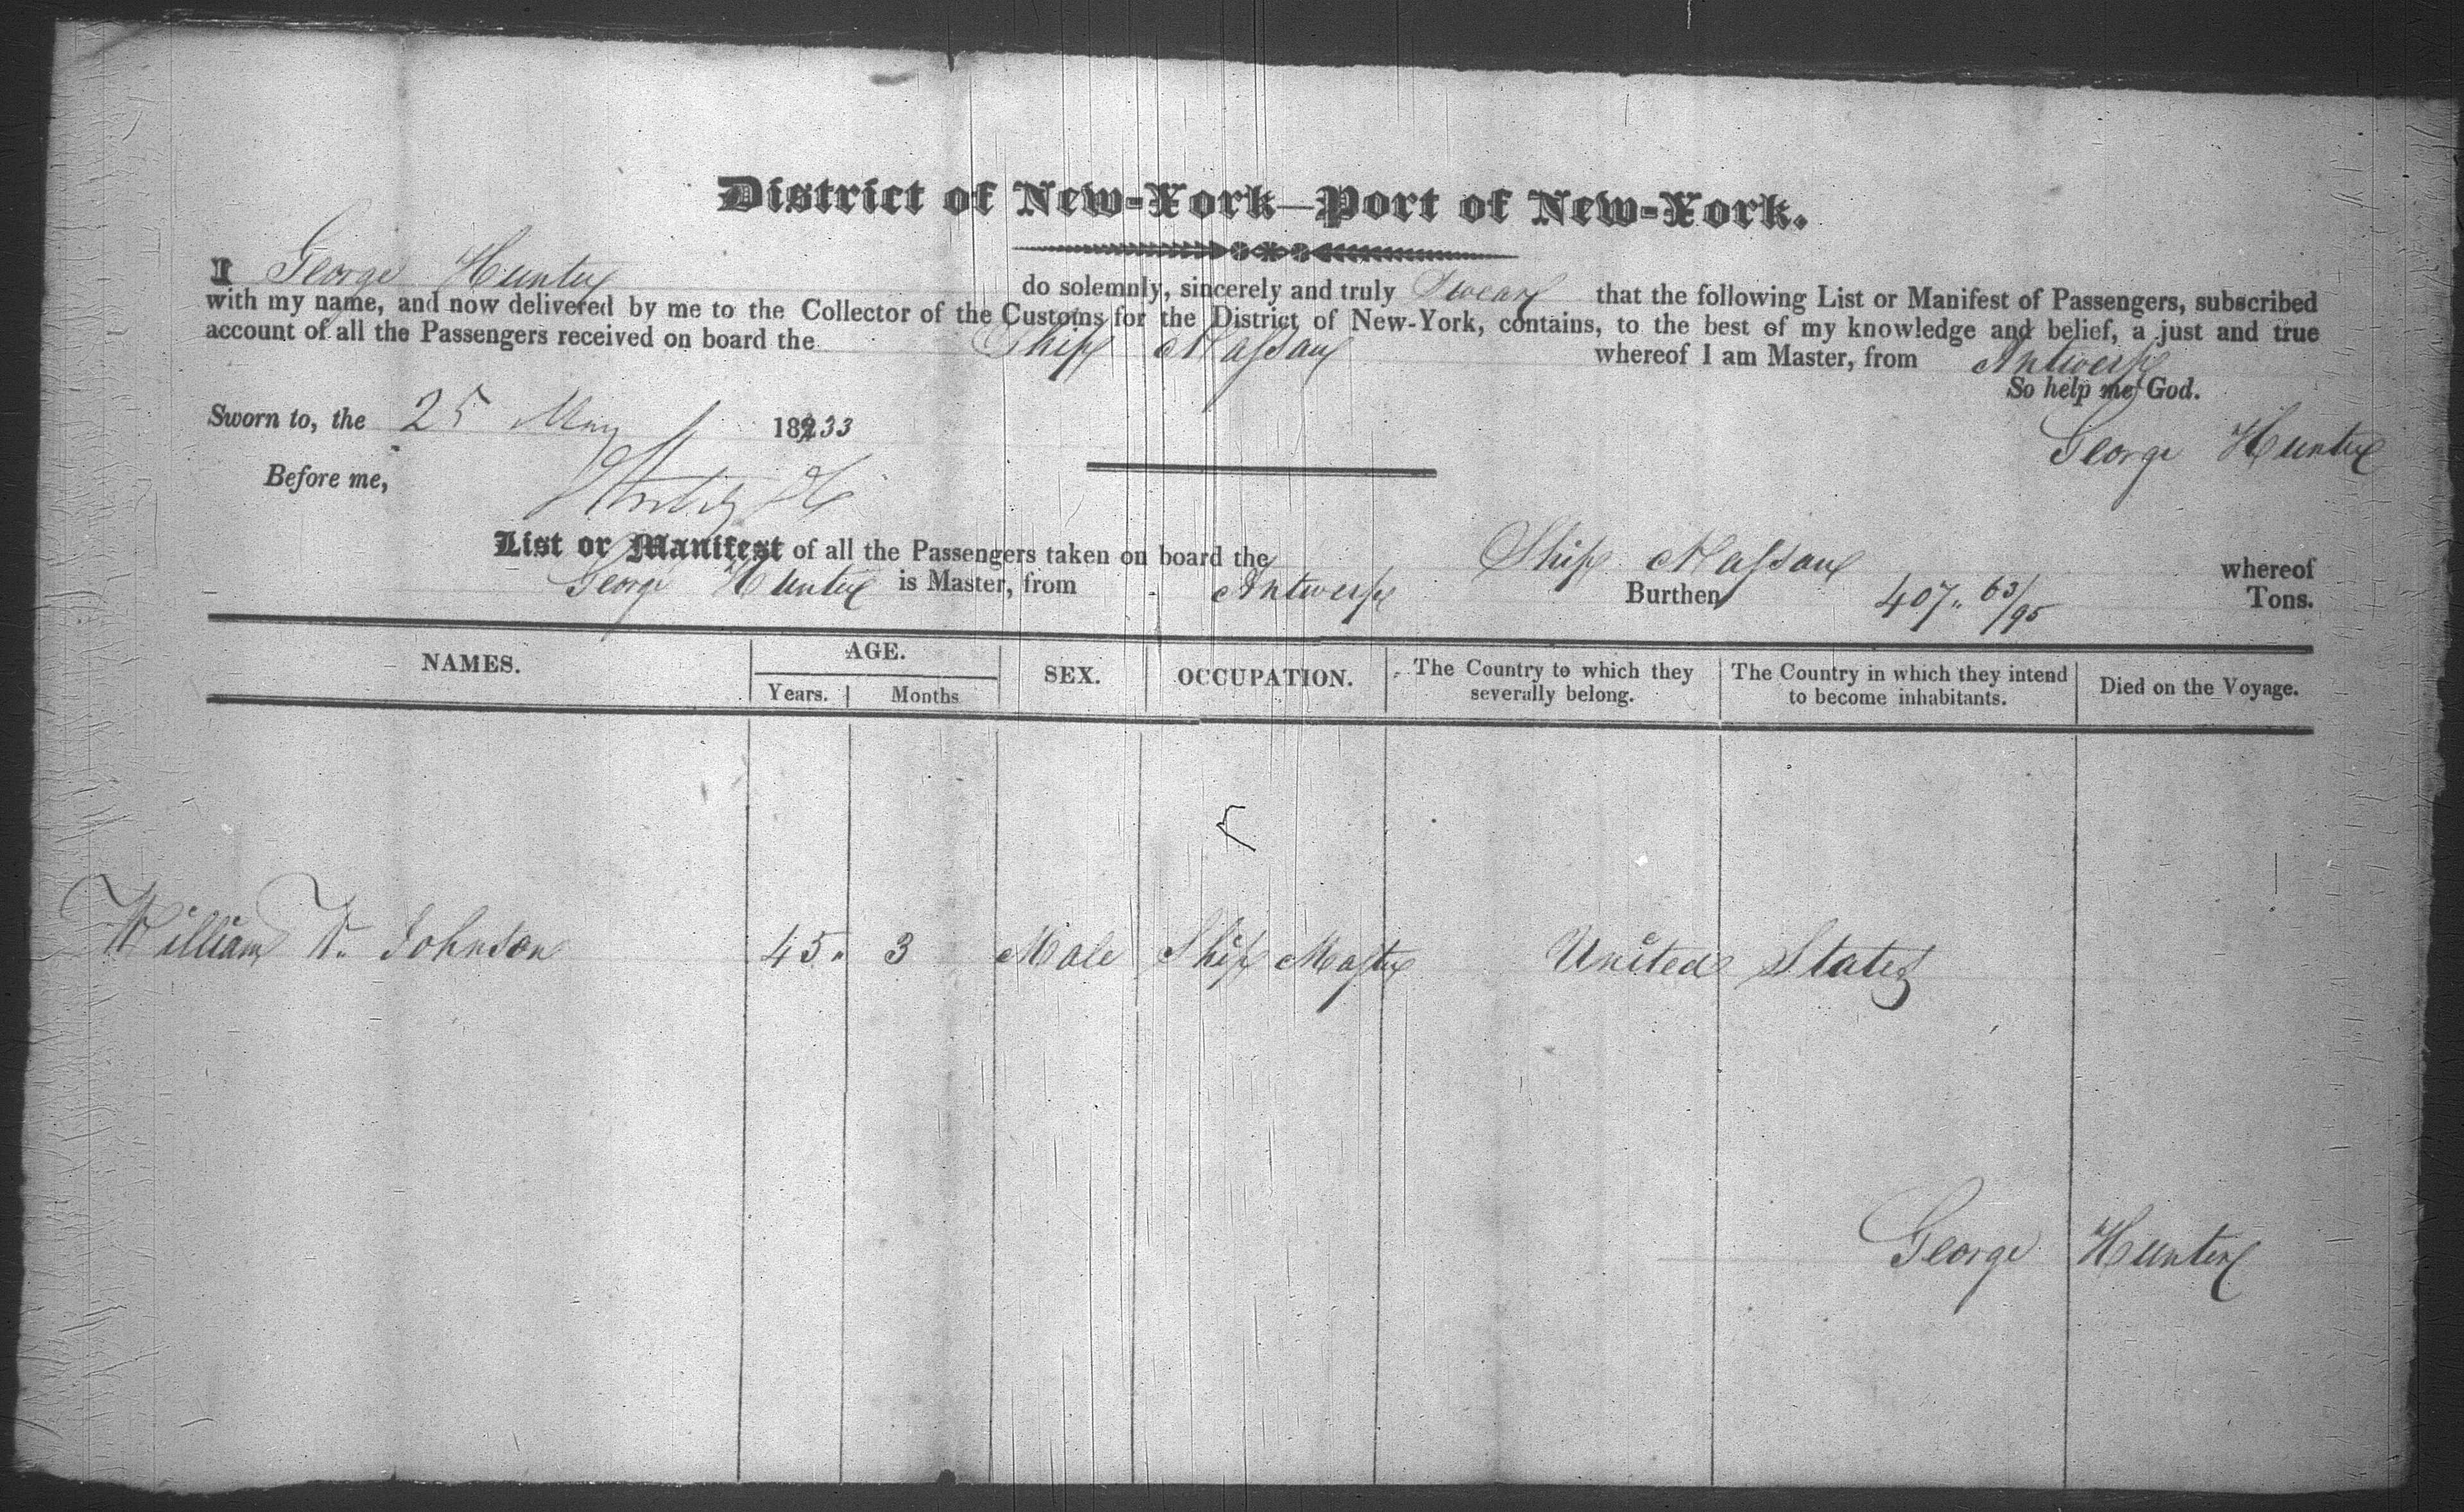 District of New-York—Port of New-York.
I George Hunter do solemnly, sincerely and truly Swear that the following List or Manifest of Passengers, subscribed
with my name, and now delivered by me to the Collector of the Customs for the District of New-York, contains, to the best of my knowledge and belief, a just and true
account of all the Passengers received on board the Ship Nassau whereof I am Master, from Antwerp
So help me God.
Sworn to, the 25 May 18233 George Hunter
Before me,
List or Manifest of all the Passengers taken on board the Ship Nassau whereof
George Hunter is Master, from Antwerp Burthen 407.. 63/95 Tons.
NAMES. AGE. SEX. OCCUPATION. The Country to which they severally belong. The Country in which they intend to become inhabitants. Died on the Voyage.
Years. Months
William W. Johnson 45.. 3 Male Ship Master United States
George Hunter